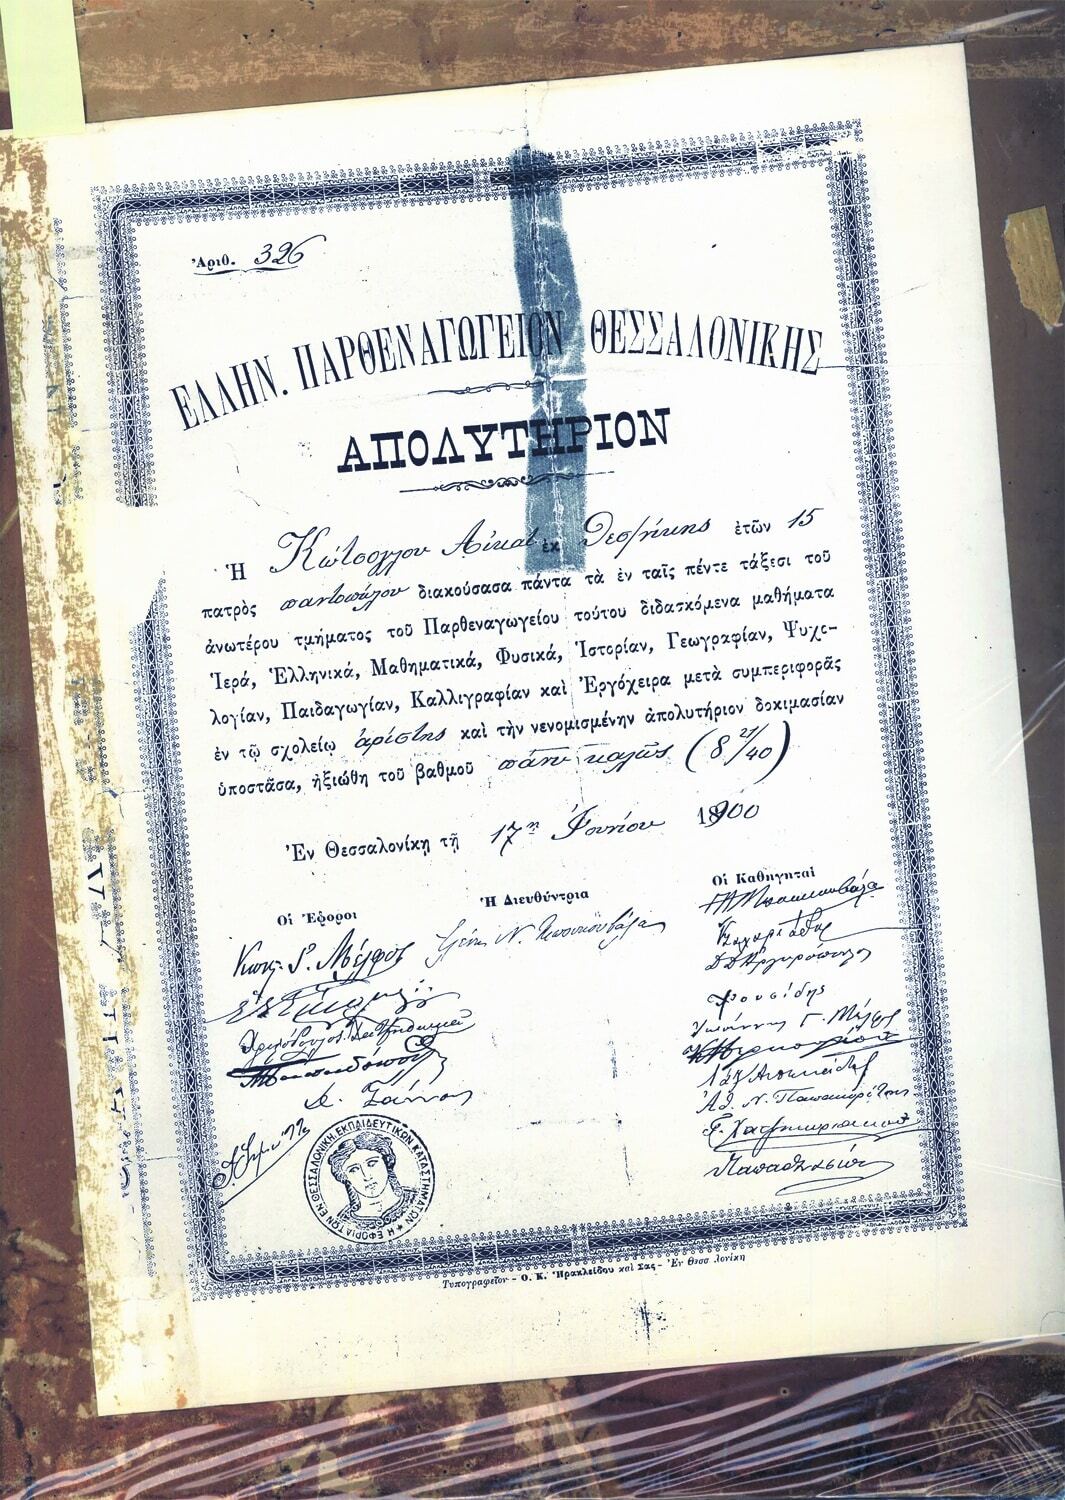 Ἀριθ. 326
ΕΛΛΗΝ. ΠΑΡΘΕΝΑΓΩΓΕΙΟΝ ΘΕΣΣΑΛΟΝΙΚΗΣ
ΑΠΟΛΥΤΗΡΙΟΝ
Ἡ Κώτσογλου Αἰκατ ἐκ Θεσ/νίκης ἐτῶν 15
πατρὸς παντοπώλου διακούσασα πάντα τὰ ἐν ταῖς πέντε τάξεσι τοῦ
ἀνωτέρου τμήματος τοῦ Παρθεναγωγείου τούτου διδασκόμενα μαθήματα
Ἱερά, Ἑλληνικά, Μαθηματικά, Φυσικά, Ἱστορίαν, Γεωγραφίαν, Ψυχο-
λογίαν, Παιδαγωγίαν, Καλλιγραφίαν καὶ Ἐργόχειρα μετὰ συμπεριφορᾶς
ἐν τῷ σχολείῳ ἀρίστης καὶ τὴν νενομισμένην ἀπολυτήριον δοκιμασίαν
ὑποστᾶσα, ἠξιώθη τοῦ βαθμοῦ πάνυ καλῶς (8 21/40)
Ἐν Θεσσαλονίκῃ τῇ 17ῃ Ἰουνίου 1900
Οἱ Ἔφοροι Ἡ Διευθύντρια Οἱ Καθηγηταί
Ν. Μπουκουβάλα
Φρουσίδης
Ἰωάννης Γ.
Ἀθ. Ν.
Η ΕΦΟΡΙΑ ΤΩΝ ΕΝ ΘΕΣΣΑΛΟΝΙΚΗ ΕΚΠΑΙΔΕΥΤΙΚΩΝ ΚΑΤΑΣΤΗΜΑΤΩΝ
Τυπογραφεῖον - Ο. Κ. Ἡρακλείδου καὶ Σας - Ἐν Θεσσαλονίκῃ